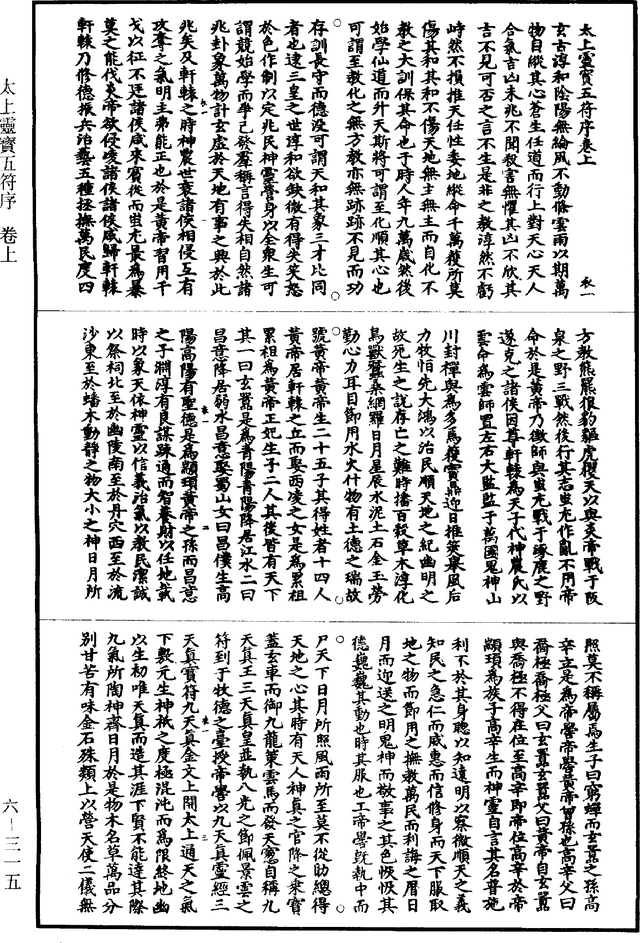 太上靈寶五符序卷上
玄古淳和陰陽無綸風不動條雲雨以期萬
物自縱其心蒼生任道而行上對天心天人
合氣吉凶未兆不聞殺害無懼其凶不欣其
吉不見可否之言不生是非之教淳然不虧
峙然不損推天任性委地縱命千萬穫所莫
傷其和其和不傷天地無主無主而自化不
教之大訓保其命也于時人年九萬歲然後
始學仙道而升天斯將可謂至化順其心也
可謂至教化之無方教亦無跡跡不見而功
存訓長守而德沒可謂天和其象三才比同
者也逮三皇之世淳和欲缺微有得失笑怒
於色作制以定兆民神靈營身以全衆生可
謂競始學而爭己發羣稱言得失相自然諸
兆卦象萬物計玄虛於天地有事之興於此
兆矣及軒轅之時神農世衰諸侯相侵互有
攻奪之氣明主弗能正也於是黃帝習用干
戈以征不廷諸侯咸來賓從而蚩尤最為暴
莫之能伐炎帝欲侵凌諸侯諸侯咸歸軒轅
軒轅乃修德振兵治藝五種拯撫萬民度四
方教熊羆很豹驅虎攖天以與炎帝戰于阪
泉之野三戰然後行其志蚩尤作亂不用帝
命於是黃帝乃徵師與蚩尤戰于啄鹿之野
遂克之諸侯因尊軒轅為天子代神農氏以
雲命為雲師置左右大監監于萬國鬼神山
川封禪與為多焉獲寶鼎迎日推筴舉風后
力牧怕先大鴻以治民順天地之紀幽明之
故死生之說存亡之難時播百穀草木淳化
鳥獸蠶桑網羅日月星辰水泥土石金玉勞
勤心力耳目節用水火什物有土德之瑞故
號黃帝黃帝生二十五子其得姓者十四人
黃帝居軒轅之丘而娶西凌之女是為累祖
累祖為黃帝正妃生子二人其後皆有天下
其一曰玄囂是為青陽青陽降居江水二曰
昌意降居弱水昌意娶蜀山女曰昌僕生高
陽高陽有聖德是為顓頊黃帝之孫而昌意
之子淵淳有良謀疎通而智養財以任地載
時以象天依神靈以信義治氣以教民潔誠
以祭祠北至於幽陵南至於丹穴西至於流
沙東至於蟠木動靜之物大小之神日月所
照莫不稱屬焉生子曰窮蟬而玄囂之孫高
辛立是為帝嚳帝嚳黃帝曾孫也高辛父曰
喬極喬極父曰玄囂玄囂父曰黃帝自玄囂
與喬極不得在位至高辛即帝位高辛於帝
顓頊為族子高辛生而神靈自言其名普施
利不於其身聰以知遠明以察微順天之義
知民之急仁而威惠而信修身而天下服取
地之物而節用之撫教萬民而利誨之曆日
月而迎送之明鬼神而敬事之其色恢恢其
德巍巍其動也時其服也工帝嚳既執中而
尸天下日月所照風雨所至莫不從助總得
天地之心其時有天人神真之官降之乘寶
蓋玄車而御九龍策雲馬而發天窻自稱九
天真王三天真皇並執八光之節佩景雲之
符到于牧德之臺授帝嚳以九天真靈經三
天真寶符九天真金文上開太上通天之氣
下敷元生神祇之度極混沌而為限終地幽
以生初唯天真而造其涯下賢不能達其際
九氣所陶神書日月於是物木名草萬品分
別甘苦有味金石殊類上以營天使二儀無
太上靈寶五符序 卷上
六-三一五